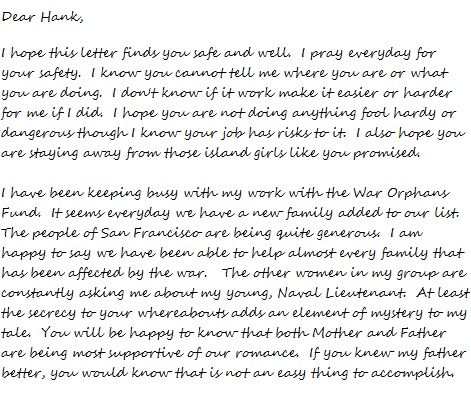 Dear Hank,
I hope this letter finds you safe and well. I pray everyday for
your safety. I know you cannot tell me where you are or what
you are doing. I don't know if it work make it easier or harder
for me if I did. I hope you are not doing anything fool hardy or
dangerous though I know your job has risks to it. I also hope you
are staying away from those island girls like you promised.
I have been keeping busy with my work with the War Orphans
Fund. It seems everyday we have a new family added to our list.
The people of San Francisco are being quite generous. I am
happy to say we have been able to help almost every family that
has been affected by the war. The other women in my group are
constantly asking me about my young, Naval Lieutenant. At least
the secrecy to your whereabouts adds an element of mystery to my
tale. You will be happy to know that both Mother and Father
are being most supportive of our romance. If you knew my father
better, you would know that is not an easy thing to accomplish.